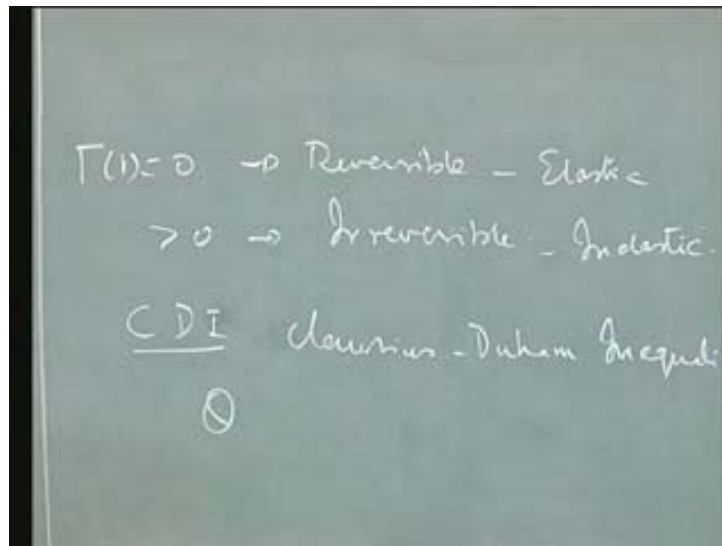 Γ(1)=0 → Reversible - Elastic
>0 → Irreversible - Inelastic.
CDI Clausius-Duham Inequali
θ